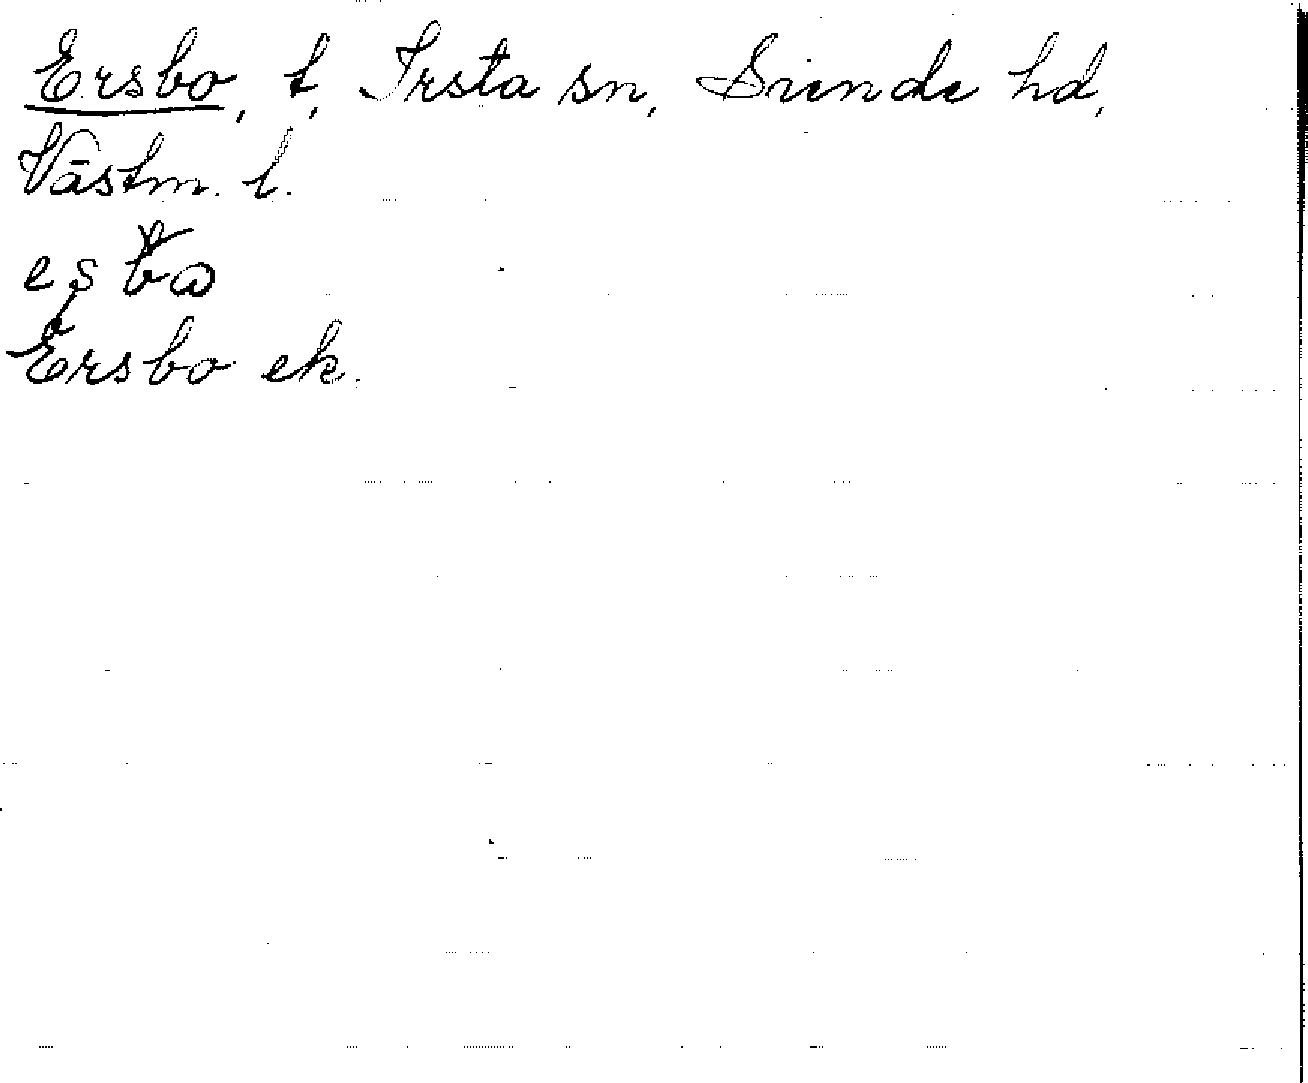 Ersbo, t, Irsta sn, Siende hd,
Västm. l.
Ersbo ek.